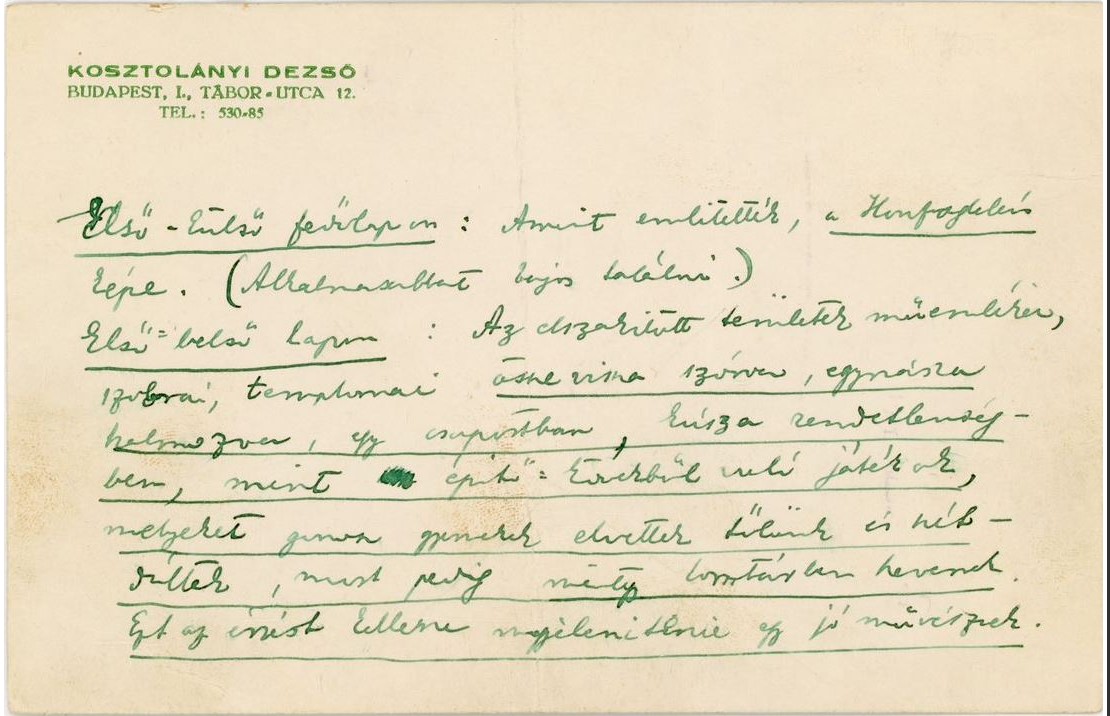 KOSZTOLÁNYI DEZSŐ
BUDAPEST, I., TÁBOR-UTCA 12.
TEL.: 530-85
Első-külső fedőlapon: Amint említették, a Honfoglalás
képe. (Alkalmasabbat bajos találni.)
Első-belső lapon: Az elszakított területek műemlékei,
szobrai, templomai össze vissza szórva, egymásra
halmozva, egy csoportban, kusza rendetlenség-
ben, mint építő-kövekből való játékok,
melyeket gonosz gyerekek elvettek tőlünk és szét-
dúltek, most pedig lomtárban hevernek.
Ezt az érzést kellene megjelenítenie egy jó művésznek.